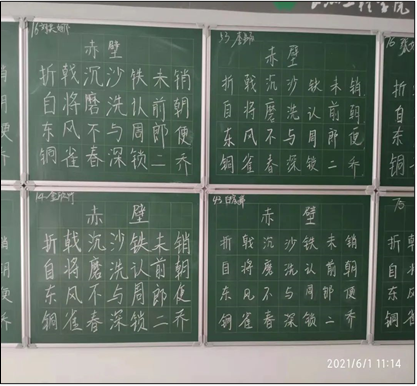 工程学院
赤壁
折戟沉沙铁未销
自将磨洗认前朝
东风不与周郎便
铜雀春深锁二乔
赤壁
折戟沉沙铁未销
自将磨洗认前朝
东风不与周郎便
铜雀春深锁二乔
赤壁
折戟沉沙铁未销
自将磨洗认前朝
东风不与周郎便
铜雀春深锁二乔
43
赤壁
折戟沉沙铁未销
自将磨洗认前朝
东风不与周郎便
铜雀春深锁二乔
2021/6/1 11:14